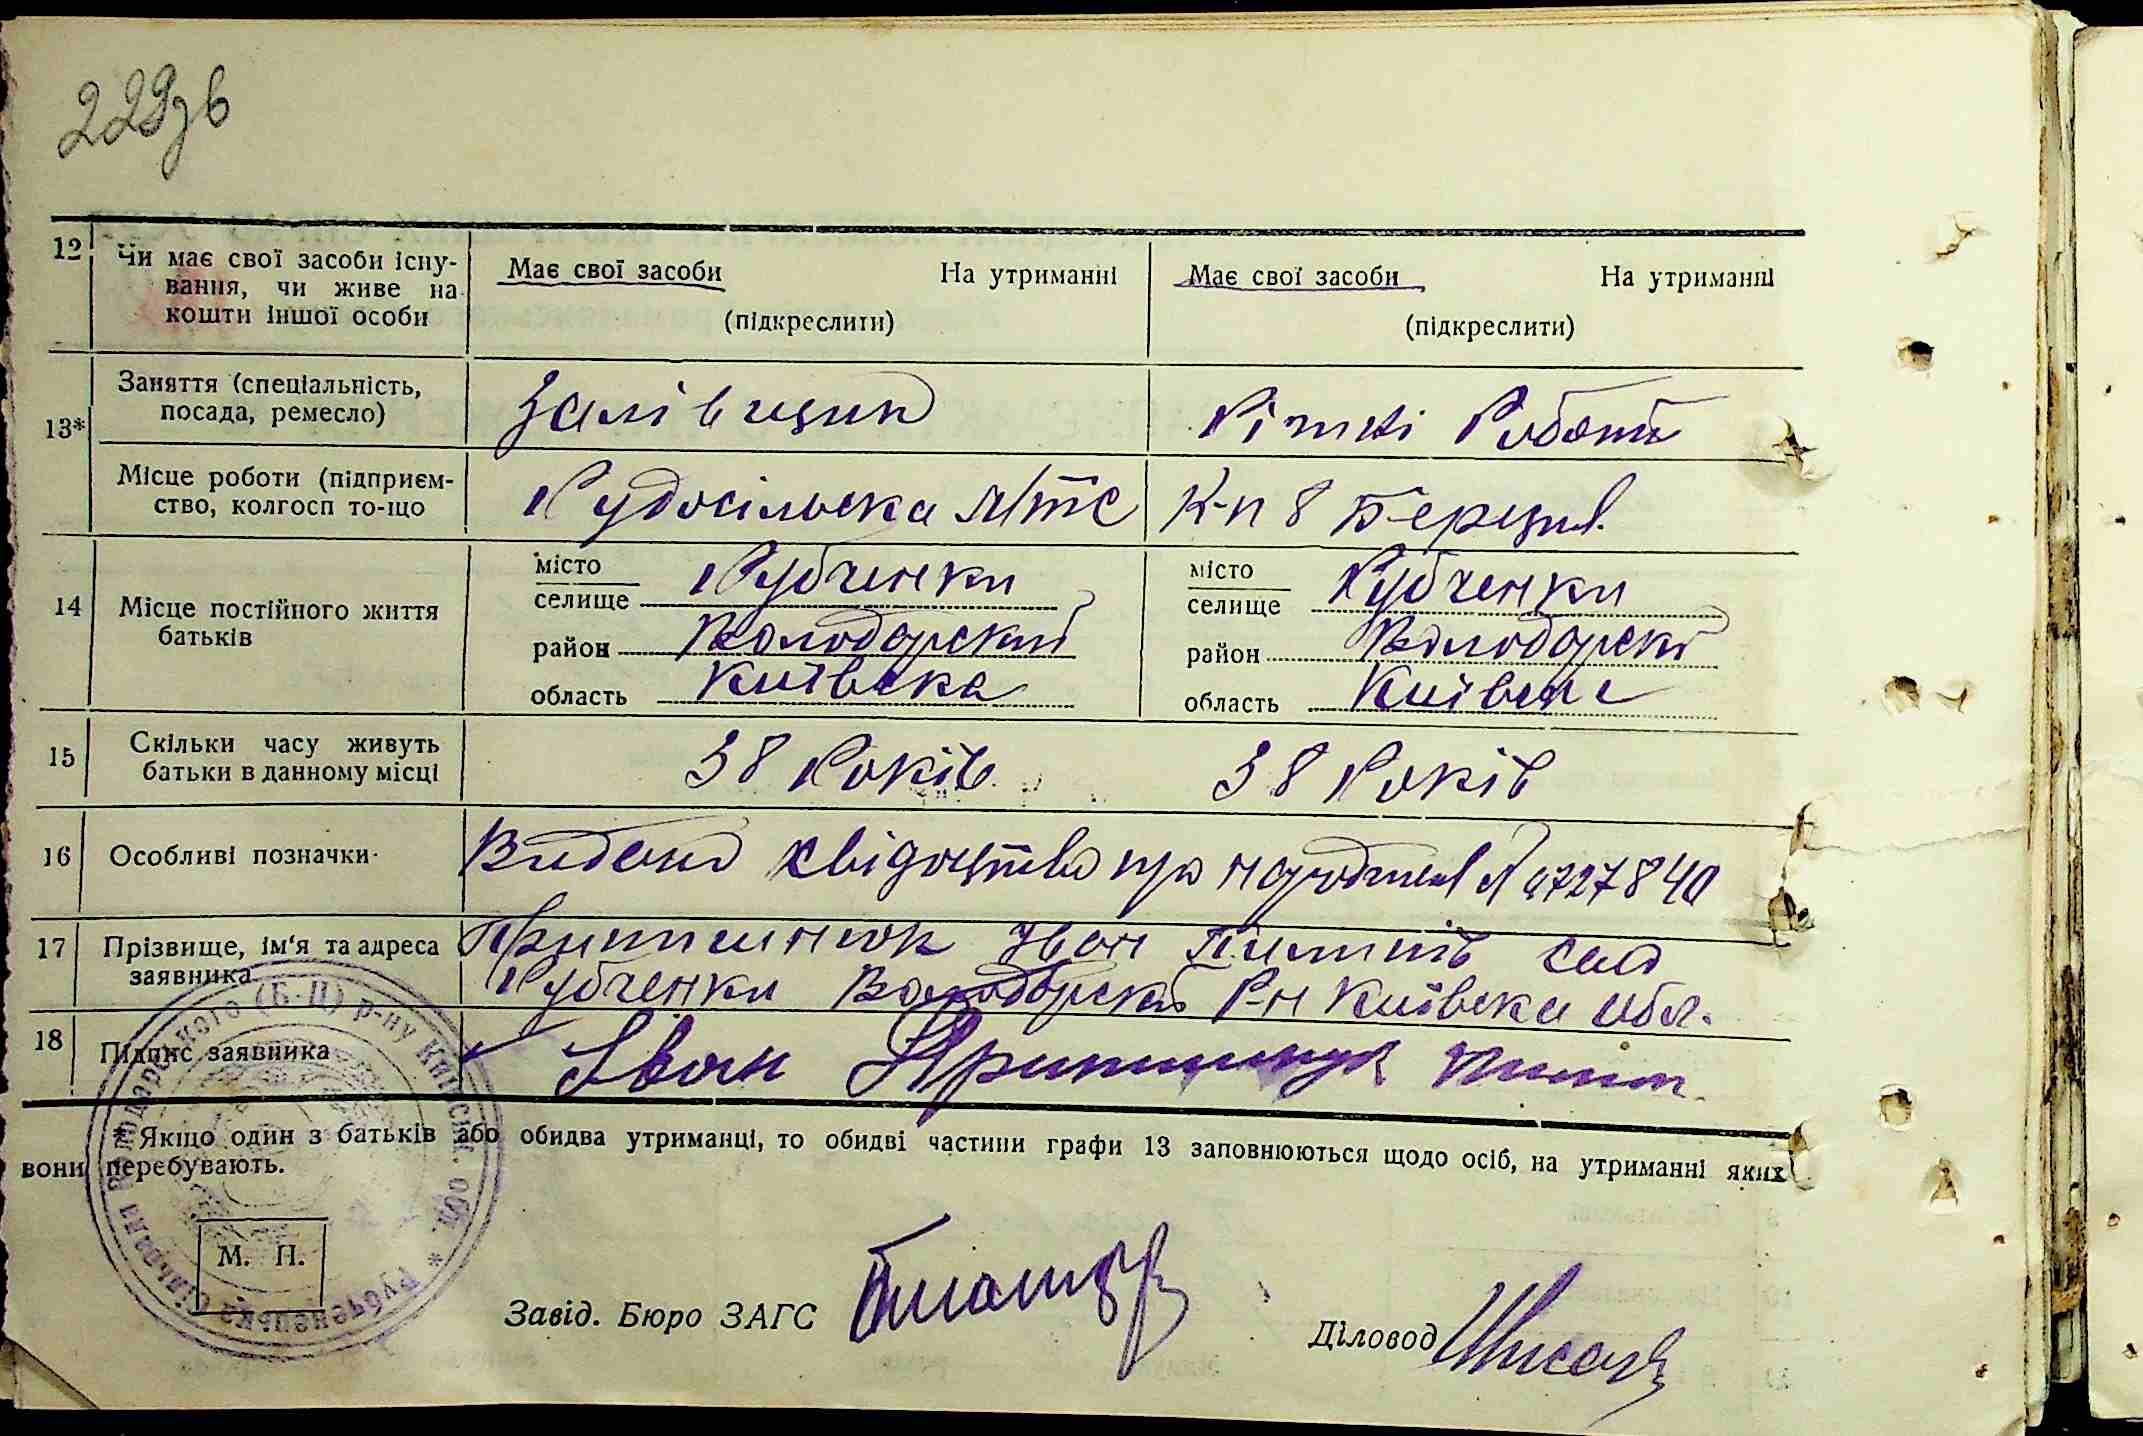 229зв
12 Чи має свої засоби існу-
вання, чи живе на
кошти іншої особи
Має свої засоби На утриманні
(підкреслити)
Має свої засоби На утриманні
(підкреслити)
13*
Заняття (спеціальність,
посада, ремесло)
Залівщик
Різні Роботи
Місце роботи (підприєм-
ство, колгосп то-що
Рудосільска МТС
К-п 8 Березня
14 Місце постійного життя
батьків
місто
селище Рубченки
район Володарский
область Київська
місто
селище Рубченки
район Володарскі
область Київск
15 Скільки часу живуть
батьки в данному місці
38 Років
38 Років
16 Особливі позначки
Видано свідоцтво про народжен
17 Прізвище, ім'я та адреса
заявника
Іван Пилипів село
Рубченки Володарскі Р-н Київска обл.
18 Підпис заявника
Іван
* Якщо один з батьків або обидва утриманці, то обидві частини графи 13 заповнюються щодо осіб, на утриманні яких
вони перебувають.
Рубченецька сільрада Володарського (Б-Ц) р-ну Київськ. обл. *
М. П.
Завід. Бюро ЗАГС
Діловод